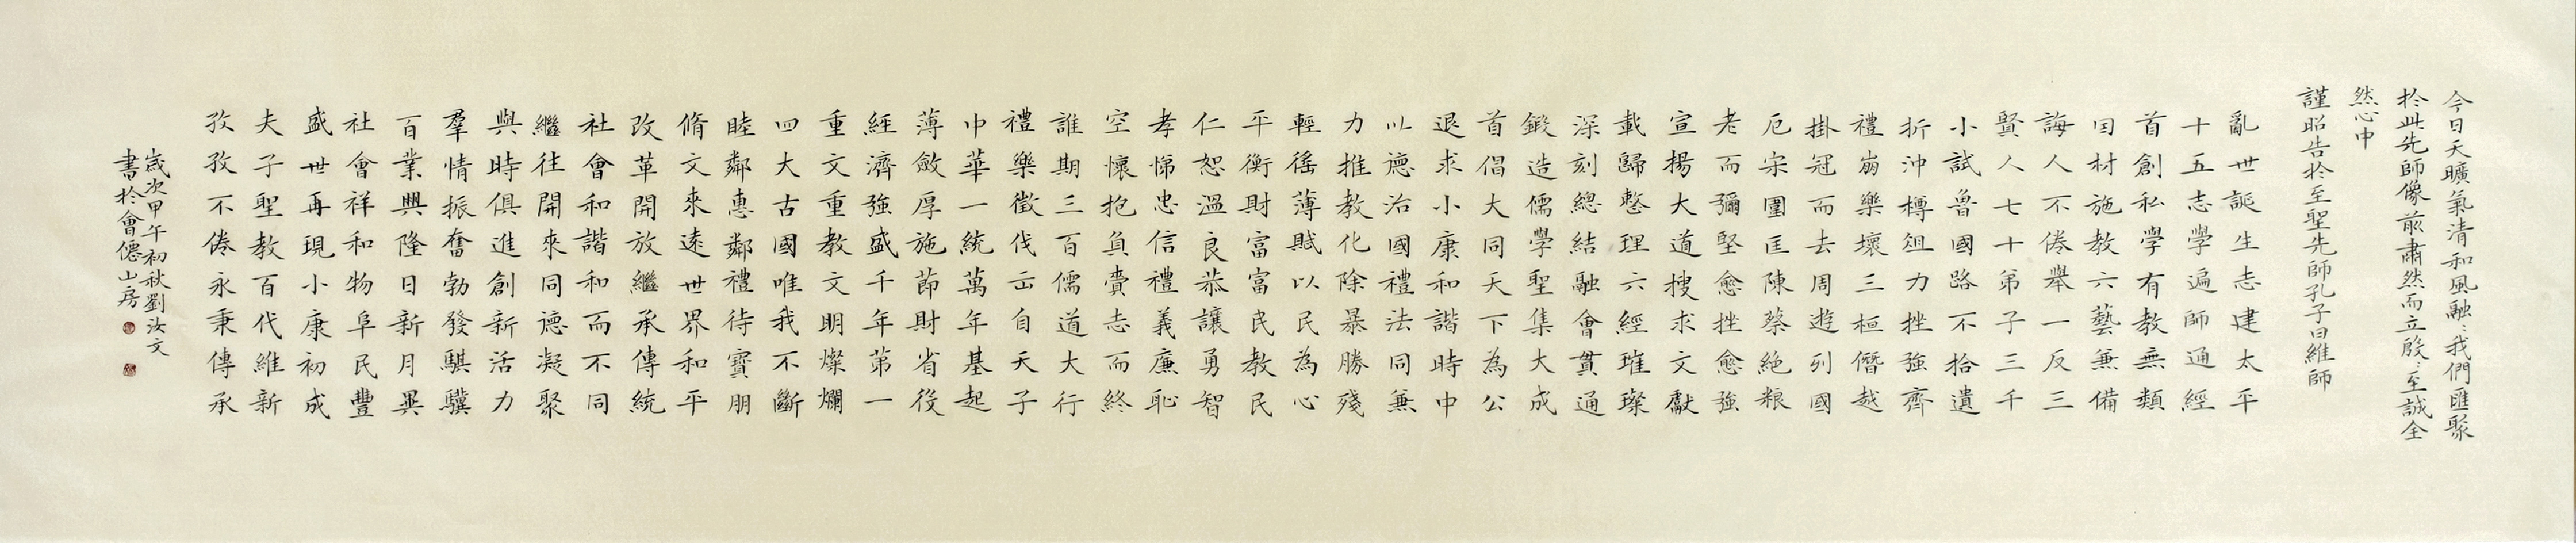 今日天曠氣清和風融〻我們匯聚
於此先師像前肅然而立殷〻至誠全
然心中
謹昭告於至聖先師孔子曰維師
亂世誕生志建太平
十五志學遍師通經
首創私學有教無類
因材施教六藝兼備
誨人不倦舉一反三
賢人七十弟子三千
小試魯國路不拾遺
折沖樽俎力挫強齊
禮崩樂壞三桓僭越
掛冠而去周遊列國
厄宋圍匡陳蔡絕粮
老而彌堅愈挫愈強
宣揚大道搜求文獻
載歸整理六經璀璨
深刻總結融會貫通
鍛造儒學聖集大成
首倡大同天下為公
退求小康和諧時中
以德治國禮法同兼
力推教化除暴勝殘
輕徭薄賦以民為心
平衡財富富民教民
仁恕溫良恭讓勇智
孝悌忠信禮義廉恥
空懷抱負賫志而終
誰期三百儒道大行
禮樂徵伐出自天子
中華一統萬年基起
薄斂厚施節財省役
經濟強盛千年第一
重文重教文明燦爛
四大古國唯我不斷
睦鄰惠鄰禮待賓朋
脩文來遠世界和平
改革開放繼承傳統
社會和諧和而不同
繼往開來同德凝聚
與時俱進創新活力
羣情振奮勃發騏驥
百業興隆日新月異
社會祥和物阜民豐
盛世再現小康初成
夫子聖教百代維新
孜孜不倦永秉傳承
歲次甲午初秋劉汝文
書於會僊山房